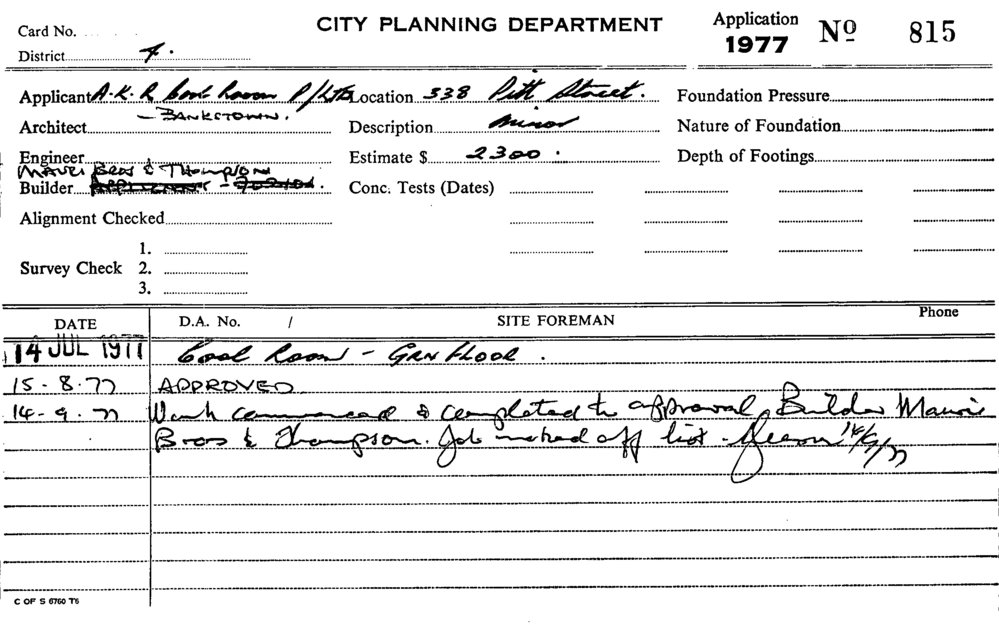 CITY PLANNING DEPARTMENT
Application 1977 Nº 815
Card No.
District 4.
Applicant A.K.R Cool Room P/Ltd
- BANKSTOWN.
Location 338 Pitt Street.
Foundation Pressure
Architect
Description Minor
Nature of Foundation
Engineer
Estimate $ 2300.
Depth of Footings
Bros & Thompson
Builder
Conc. Tests (Dates)
Alignment Checked
Survey Check
1.
2.
3.
DATE D.A. No. / SITE FOREMAN Phone
14 JUL 1977 Cool Room - GRN FLOOR.
15-8.77 APPROVED
14-9.77 Work commenced & completed to approval. Builder
Bros & Thompson. Job marked off list. 14/9/77
C OF S 6760 T6